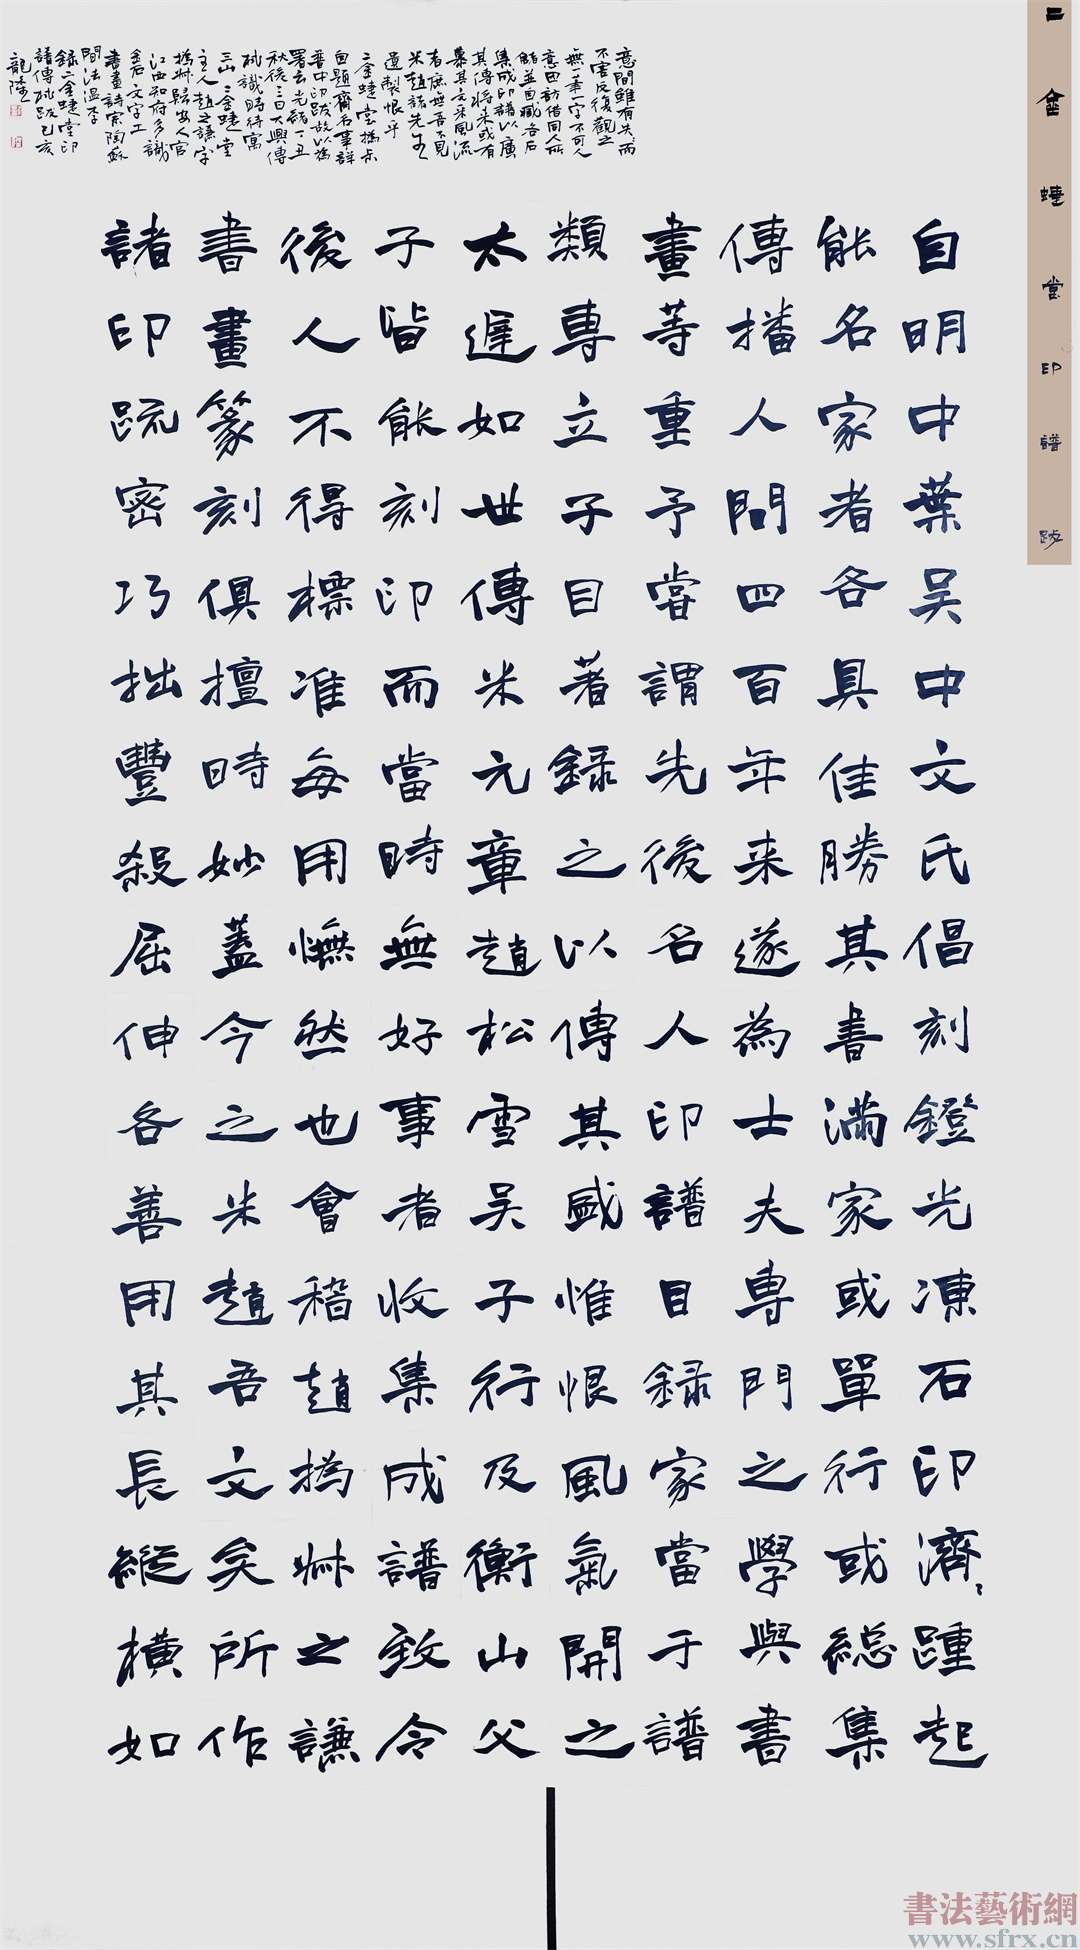 二金蜨堂印譜跋
自明中葉吴中文氏倡刻鐙光凍石印濟〻踵起
能名家者各具佳勝其書滿家或單行或總集
傳播人間四百年来遂為士夫專門之學與書
畫等重予嘗謂先後名人印譜目録家當于譜
類專立子目著録之以傳其盛惟恨風氣開之
太遲如世傳米元章趙松雪吴子行及衡山父
子皆能刻印而當時無好事者收集成譜致令
後人不得標准每用憮然也會稽趙撝叔之謙
書畫篆刻俱擅時妙蓋今之米趙吾文矣所作
諸印疏密巧拙豐殺屈伸各善用其長縱横如
意間雖有失而
不害反復觀之
無一筆一字不可人
意因訪借同人所
觝並自藏各石
集成印譜以廣
其傳将来或有
慕其文采風流
者庶無吾不見
米趙諸先生
遺製恨乎
二金蜨堂撝叔
自題齋名筆詳
譜中印跋故以為
署云光緒丁丑
秋後三日大興傅
栻識時待寓
三山 二金蜨堂
主人趙之謙字
撝叔歸安人官
江西知府多識
金石文字工
書畫詩宗陶蘇
間法温李
録二金蜨堂印
譜傅栻跋己亥
龍陸
書法藝術網
www.sfrx.cn